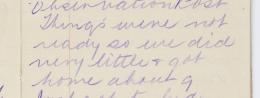 Observation Post
Things were not
ready so we did
very little & got
home about 9